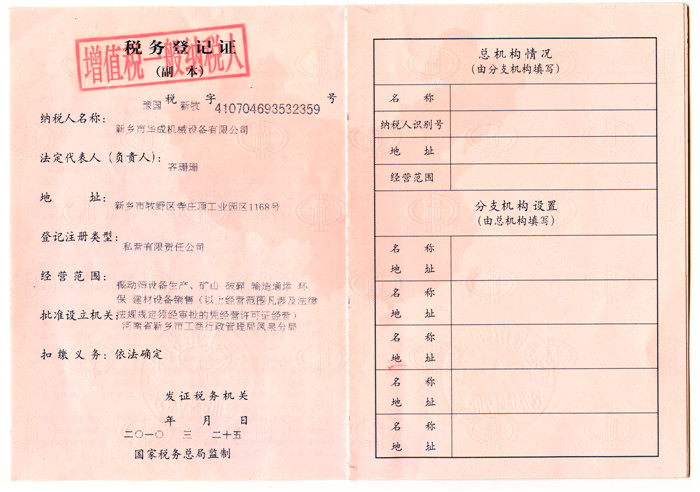 税务登记证
增值税一般纳税人
(副 本)
豫国 税 新牧 字 410704693532359 号
纳税人名称:
新乡市华成机械设备有限公司
法定代表人(负责人):
齐珊珊
地 址:
新乡市牧野区寺庄顶工业园区1168号
登记注册类型:
私营有限责任公司
经营范围:
振动筛设备生产、矿山 破碎 输送清理 环
保 建材设备销售(以上经营范围凡涉及法律
批准设立机关:
法规规定须经审批的凭经营许可证经营)
河南省新乡市工商行政管理局凤泉分局
扣缴义务:依法确定
发证税务机关
年 月 日
二〇一〇 三 二十五
国家税务总局监制
总机构情况
(由分支机构填写)
名 称
纳税人识别号
地 址
经营范围
分支机构设置
(由总机构填写)
名 称
地 址
名 称
地 址
名 称
地 址
名 称
地 址
名 称
地 址